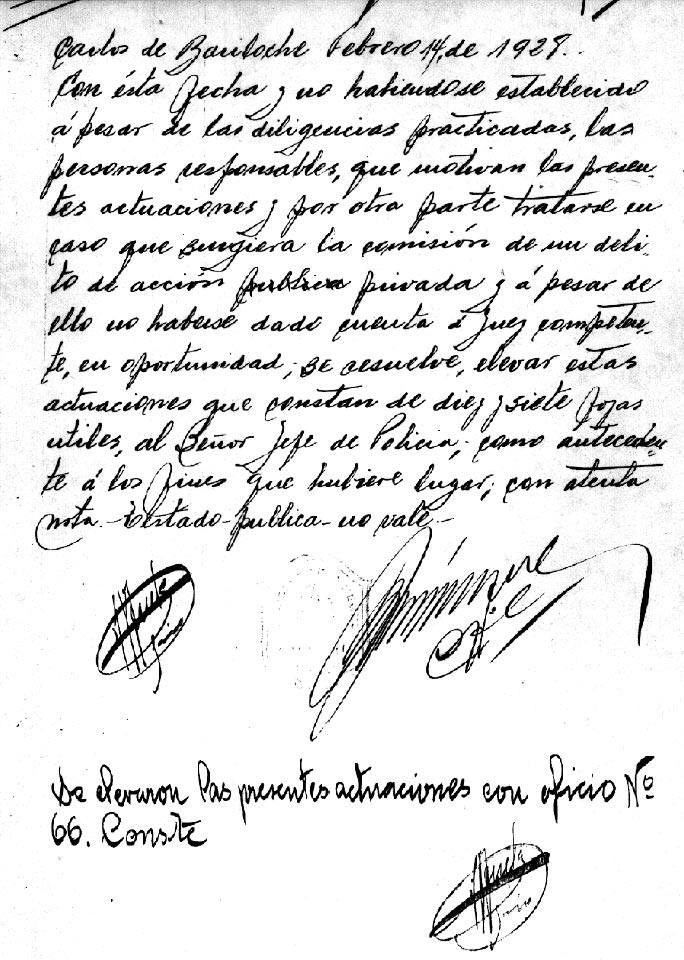 Carlos de Bariloche Febrero 14, de 1929.
Con ésta fecha y no habiendose establecido
á pesar de las diligencias practicadas, las
personas responsables, que motivan las presen-
tes actuaciones y por otra parte tratarse en
caso que surgiera la comisión de un deli-
to de acción publica privada y á pesar de
ello no haberse dado cuenta á Juez competen-
te, en oportunidad; se resuelve, elevar estas
actuaciones que constan de diez y siete fojas
utiles, al Señor Jefe de Policia; como anteceden-
te á los fines que hubiere lugar; con atenta
nota.- Testado- publica- no vale-
Se elevaron las presentes actuaciones con oficio Nº
66. Conste